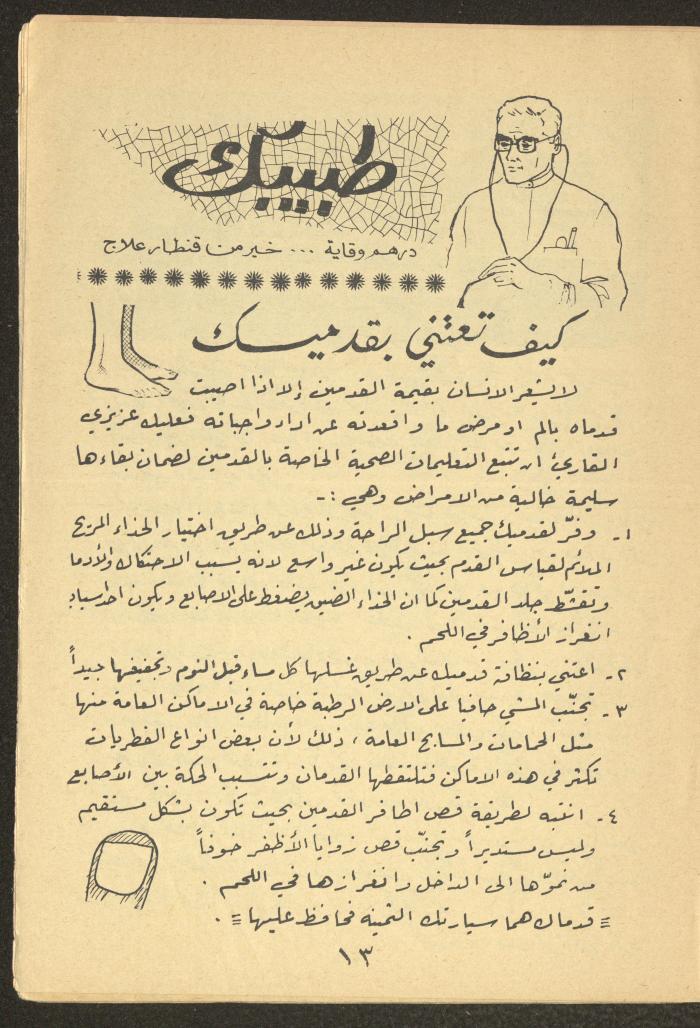 طبيبك
درهم وقاية ... خير من قنطار علاج
كيف تعتني بقدميك
لا يشعر الانسان بقيمة القدمين إلا اذا اصيبت
قدماه بالم او مرض ما واقعدته عن اداء واجباته فعليك عزيزي
القارئ ان تتبع التعليمات الصحية الخاصة بالقدمين لضمان بقاءها
سليمة خالية من الامراض وهي :-
١- وفّر لقدميك جميع سبل الراحة وذلك عن طريق اختيار الحذاء المريح
الملائم لقياس القدم بحيث يكون غير واسع لانه يسبب الاحتكاك والأدما
وتقشّط جلد القدمين كما ان الحذاء الضيق يضغط على الاصابع ويكون احد اسباب
انغراز الأظافر في اللحم .
٢- اعتني بنظافة قدميك عن طريق غسلها كل مساء قبل النوم وتجفيفها جيداً
٣- تجنّب المشي حافيا على الارض الرطبة خاصة في الاماكن العامة منها
مثل الحمامات والمسابح العامة ، ذلك لأن بعض انواع الفطريات
تكثر في هذه الاماكن فتلتقطها القدمان وتتسبب الحكة بين الأصابع
٤- انتبه لطريقة قص اظافر القدمين بحيث تكون بشكل مستقيم
وليس مستديراً وتجنّب قص زوايا الأظفر خوفاً
من نموّها الى الداخل وانغرازها في اللحم .
≡ قدماك هما سيارتك الثمينه فحافظ عليها ≡ .
١٣